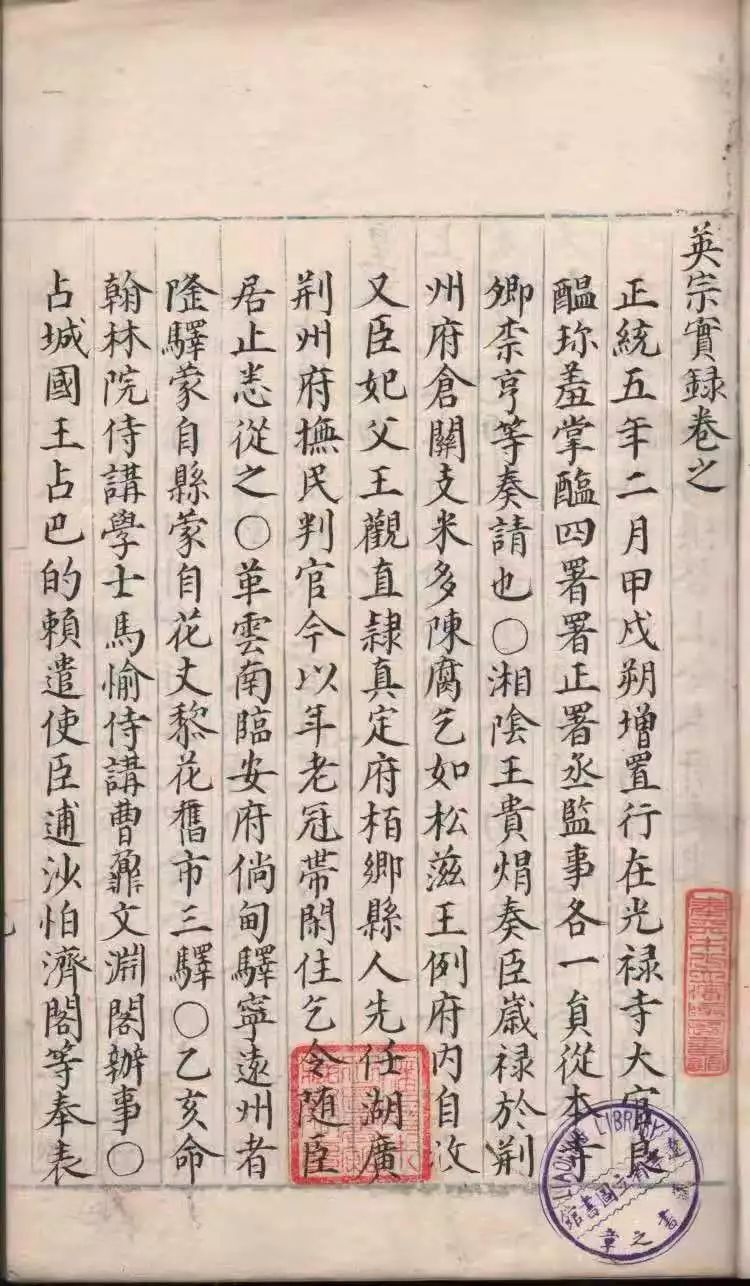 英宗實録卷之
正統五年二月甲戌朔增置行在光禄寺大官良
醖珎羞掌醢四署署正署丞監事各一員從本寺
卿柰亨等奏請也○湘陰王貴烠奏臣歳禄於荆
州府倉關支米多陳腐乞如松滋王例府内自汝
又臣妃父王觀直隷真定府栢鄉縣人先任湖廣
荆州府撫民判官今以年老冠帶閑住乞令随臣
居止悉從之○革雲南臨安府倘甸驛寧遠州者
隆驛蒙自縣蒙自花丈黎花舊市三驛○乙亥命
翰林院侍講學士馬愉侍講曹鼐文淵閣辦事○
占城國王占巴的頼遣使臣逋沙怕濟閣等奉表
LIAONING LIBRARY
圖書館
藏書之章